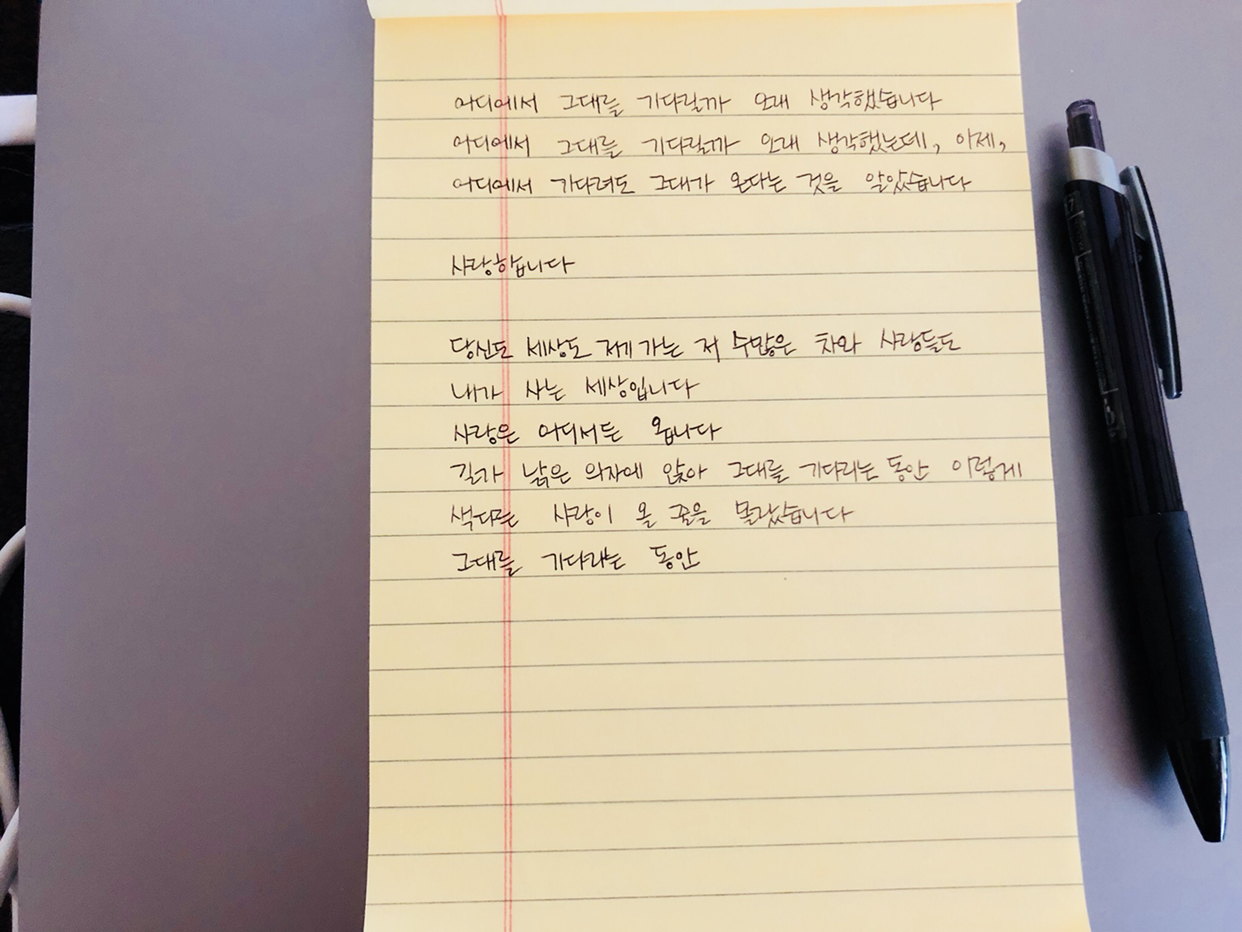 어디에서 그대를 기다릴까 오래 생각했습니다
어디에서 그대를 기다릴까 오래 생각했는데, 이제,
어디에서 기다려도 그대가 온다는 것을 알았습니다
사랑합니다
당신도 세상도 저기 가는 저 수많은 차와 사람들도
내가 사는 세상입니다
사랑은 어디서든 옵니다
길가 낡은 의자에 앉아 그대를 기다리는 동안 이렇게
색다른 사랑이 올 줄을 몰랐습니다
그대를 기다리는 동안